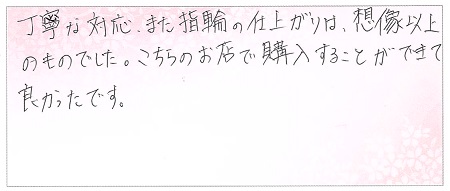 丁寧な対応、また指輪の仕上がりは、想像以上
のものでした。こちらのお店で購入することができて
良かったです。